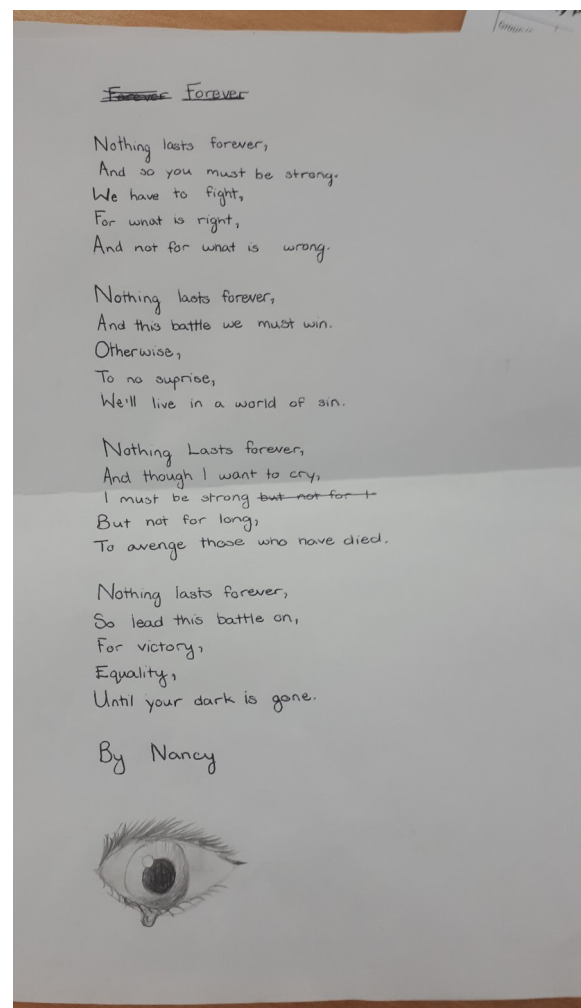 Forever Forever
Nothing lasts forever,
And so you must be strong.
We have to fight,
For what is right,
And not for what is wrong.
Nothing lasts forever,
And this battle we must win.
Otherwise,
To no suprise,
We'll live in a world of sin.
Nothing Lasts forever,
And though I want to cry,
I must be strong but not for l
But not for long,
To avenge those who have died.
Nothing lasts forever,
So lead this battle on,
For victory,
Equality,
Until your dark is gone.
By Nancy